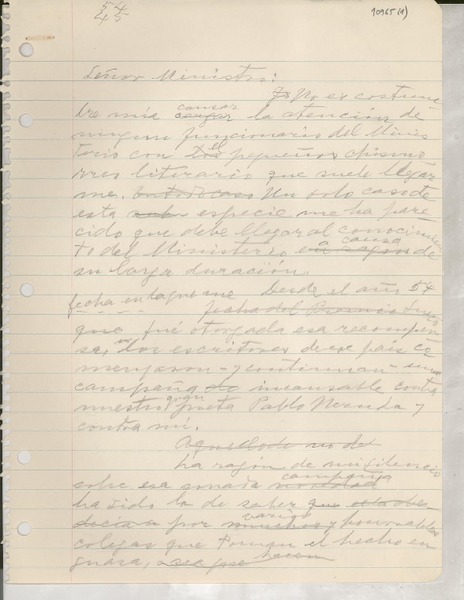 54
45
10965 (1)
Señor Ministro:
No es costum
bre mía causar la atención de
ningun funcionario del Minis
terio con el pequeño chismo
rreo literario que suele llegar
me. En todo caso Un solo caso de
esta especie me ha pare
cido que debe llegar al conocimien
to del Ministerio a causa de
su larga duración.
Desde el año 54
fecha en la que me
que fué otorgada esa recompen
sa, dos escritores de ese país co
menzaron - y continuan - una
campaña incansable contra
nuestro gran poeta Pablo Neruda y
contra mí.
La razón de mi silencio
sobre esa campaña
ha sido la de saber
por varios y honorables
colegas que toman el hecho en
guasa,